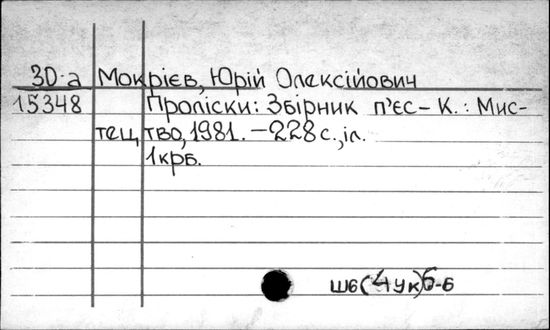 30-а Мокрієв, Юрій Олексійович
15348 Проліски: Збірник п'єс – К.: Мис-
тецтво, 1981. – 228 с., іл.
1крб.
Ш6(4Ук)6-6